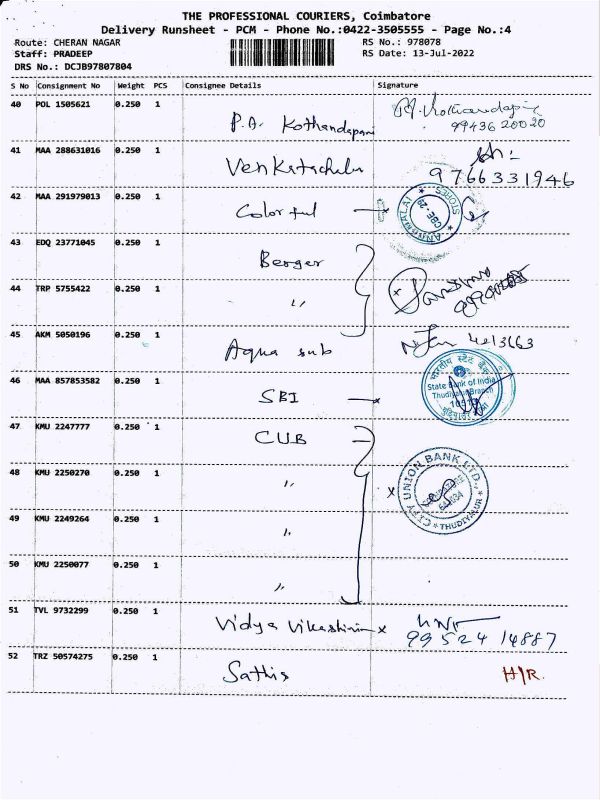 THE PROFESSIONAL COURIERS, Coimbatore
Delivery Runsheet - PCM - Phone No.:0422-3505555 - Page No.:4
Route: CHERAN NAGAR
RS No.: 978078
Staff: PRADEEP
RS Date: 13-Jul-2022
DRS No.: DCJB97807804
S No Consignment No Weight PCS Consignee Details Signature
40 POL 1505621 0.250 1 P.A. Kothandapani
99436 20020
41 MAA 288631016 0.250 1 Venkatachalu
9766331946
42 MAA 291979013 0.250 1 Colorful
ANNAMALAI STORES CBE-29
43 EDQ 23771045 0.250 1 Berger
44 TRP 5755422 0.250 1 "
45 AKM 5050196 0.250 1 Aqua sub
46 MAA 857853582 0.250 1 SBI
भारतीय स्टेट बैंक
State Bank of India
Thudiyalur Branch
47 KMU 2247777 0.250 1 CUB
48 KMU 2250270 0.250 1 "
CITY UNION BANK LTD., THUDIYALUR
COIMBATORE
641034
49 KMU 2249264 0.250 1 "
50 KMU 2250077 0.250 1 "
51 TVL 9732299 0.250 1 Vidya Vikashini x
99524 14887
52 TRZ 50574275 0.250 1 Sathis H/R.